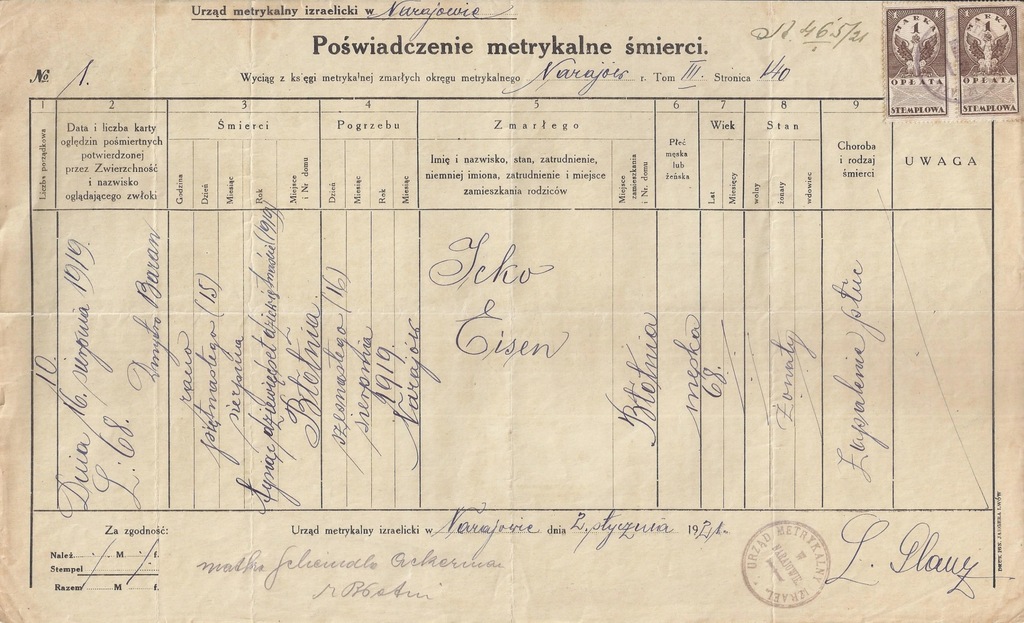 Urząd metrykalny izraelicki w Narajowie
Poświadczenie metrykalne śmierci.
№ 1.
Wyciąg z księgi metrykalnej zmarłych okręgu metrykalnego Narajów r. Tom III. Stronica 140
465/21
MARKA
1
OPŁATA
STEMPLOWA
MARKA
1
OPŁATA
STEMPLOWA
1 2 3 4 5 6 7 8 9
Liczba porządkowa
Data i liczba karty
oględzin pośmiertnych
potwierdzonej
przez Zwierzchność
i nazwisko
oglądającego zwłoki
Śmierci
Godzina
Dzień
Miesiąc
Rok
Miejsce
i Nr. domu
Pogrzebu
Dzień
Miesiąc
Rok
Miejsce
Zmarłego
Imię i nazwisko, stan, zatrudnienie,
niemniej imiona, zatrudnienie i miejsce
zamieszkania rodziców
Miejsce
zamieszkania
i Nr. domu
Płeć
męska
lub
żeńska
Wiek
Lat
Miesięcy
Stan
wolny
żonaty
wdowiec
Choroba
i rodzaj
śmierci
UWAGA
10.
Dnia 16. sierpnia 1919.
L: 68. Dmytro Baran
rano
piętnastego (15)
sierpnia
tysiąc dziewięćset dziewiętnaście (1919)
Błotnia
szesnastego (16)
sierpnia
1919
Narajów
Icko
Eisen
Błotnia
męska
68.
żonaty
Zapalenie płuc
Za zgodność:
Należ. M f.
Stempel
Razem M f.
Urząd metrykalny izraelicki w Narajowie dnia 2. stycznia 1921.
matka Scheindla Ackerman
URZĄD METRYKALNY IZRAEL.
W
NARAJOWIE
DRUK. JAKÓBERA LWÓW